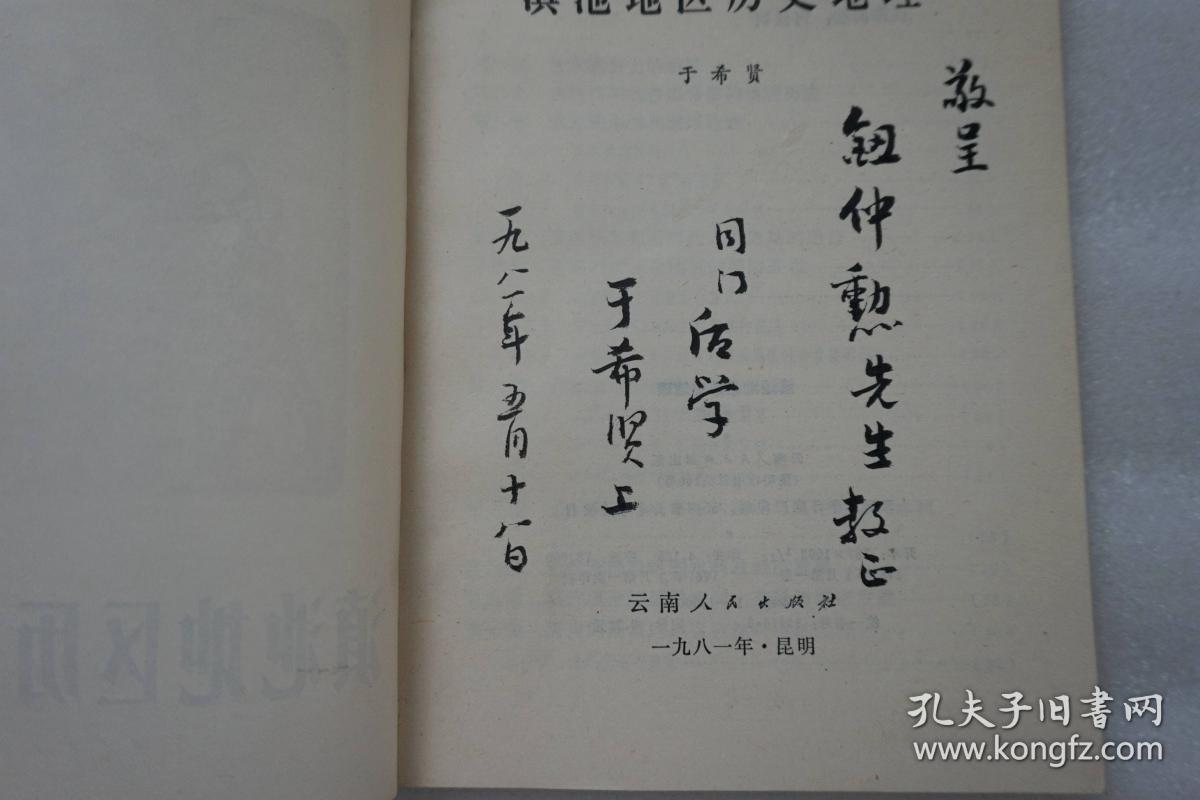 滇池地区历史地理
于希贤
敬呈
钮仲勳先生教正
同门后学
于希贤上
一九八一年五月十八日
云南人民出版社
一九八一年·昆明
滇池地区历
孔夫子旧书网
www.kongfz.com